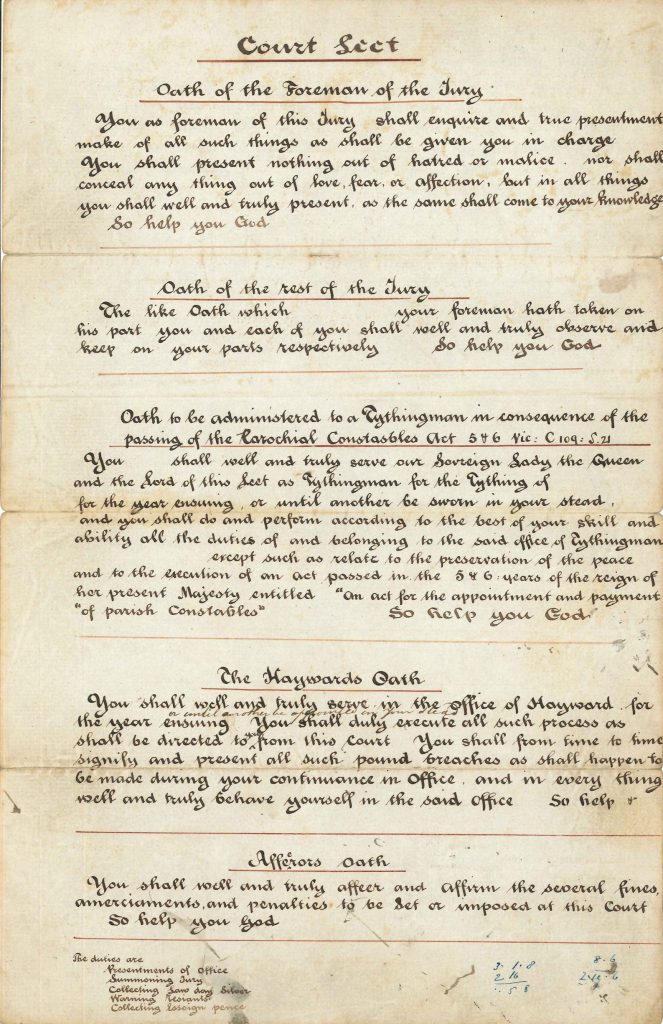 Court Leet
Oath of the Foreman of the Jury.
You as foreman of this Jury shall enquire and true presentment
make of all such things as shall be given you in charge
You shall present nothing out of hatred or malice. nor shall
conceal any thing out of love, fear, or affection, but in all things
you shall well and truly present, as the same shall come to your knowledge
So help you God
Oath of the rest of the Jury
The like Oath which your foreman hath taken on
his part you and each of you shall well and truly observe and
keep on your parts respectively So help you God
Oath to be administered to a Tythingman in consequence of the
passing of the Parochial Constables Act 5 & 6 Vic: C 109: S. 21
You shall well and truly serve our Sovreign Lady the Queen
and the Lord of this Leet as Tythingman for the Tything of
for the year ensuing, or until another be sworn in your stead,
and you shall do and perform according to the best of your skill and
ability all the duties of and belonging to the said office of Tythingman
except such as relate to the preservation of the peace
and to the execution of an act passed in the 5 & 6 years of the reign of
her present Majesty entitled "An act for the appointment and payment
"of parish Constables" So help you God
The Haywards Oath
You shall well and truly serve in the office of Hayward for
or until another be appointed in your stead
the year ensuing You shall duly execute all such process as
shall be directed to you from this Court You shall from time to time
signify and present all such pound breaches as shall happen to
be made during your continuance in Office, and in every thing
well and truly behave yourself in the said Office So help &
Afferors Oath
You shall well and truly affeer and affirm the several fines,
amerciaments, and penalties to be set or imposed at this Court
So help you God
The duties are
Presentments of Office
Summoning Jury
Collecting Law day Silver
Warning resiants
Collecting Essoign pence
3. 1. 8
2 16
5 8
8. 6